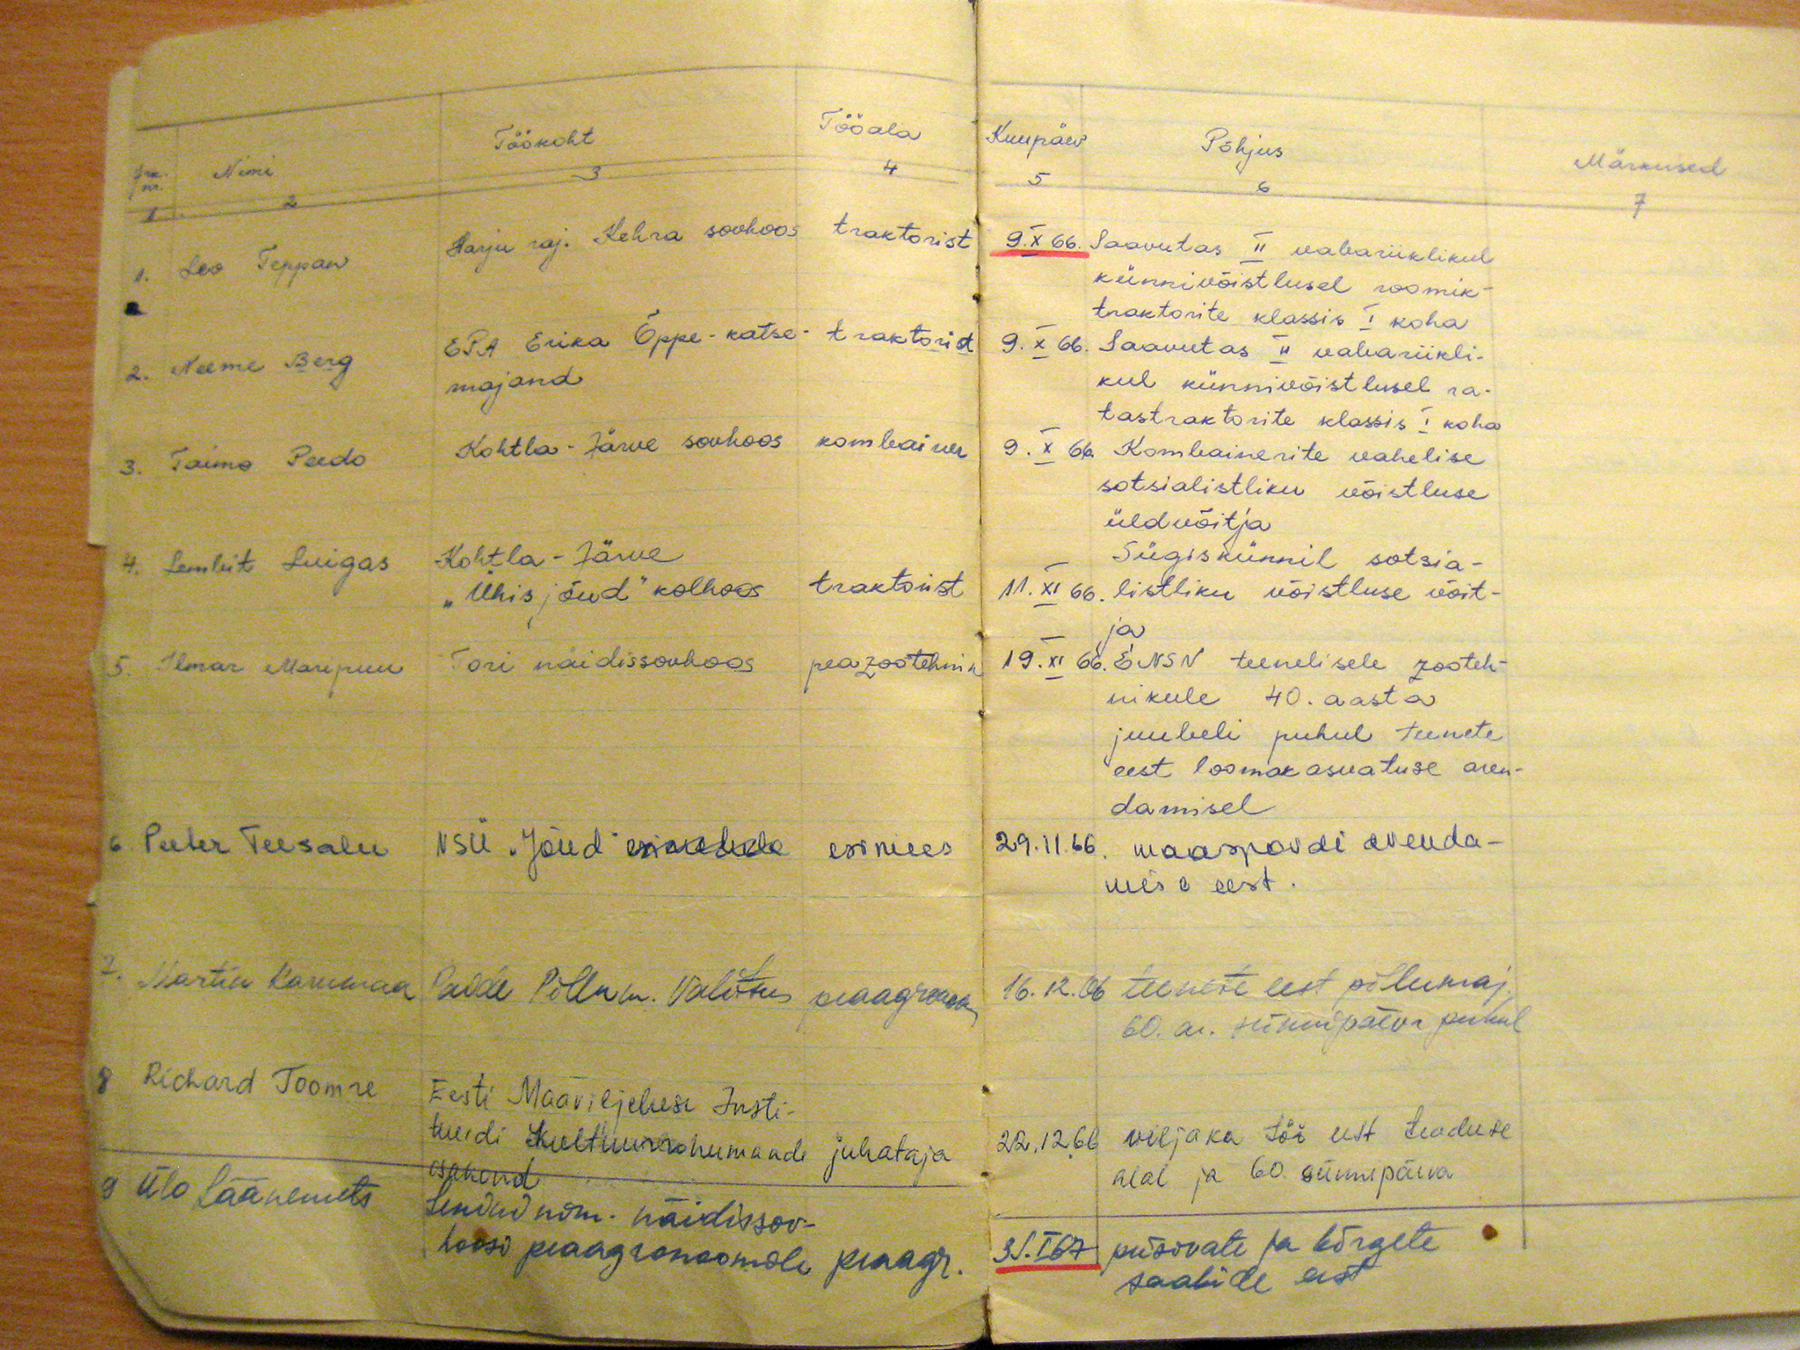 Jrk. nr. Nimi Töökoht Tööala Kuupäev Põhjus Märkused
1 2 3 4 5 6 7
1. Leo Teppan Harju raj. Kehra sovhoos traktorist 9.X 66. Saavutas II vabariiklikul
künnivõistlusel roomik-
traktorite klassis I koha
2. Neeme Berg EPA Erika Õppe-katse- traktorist 9.X 66. Saavutas II vabariikli-
majand kul künnivõistlusel ra-
tastraktorite klassis I koha
3. Taimo Peedo Kohtla-Järve sovhoos kombainer 9.X 66. Kombainerite vahelise
sotsialistliku võistluse
üldvõitja
4. Lembit Luigas Kohtla-Järve Sügiskünnil sotsia-
„Ühisjõud" kolhoos traktorist 11.XI 66. listliku võistluse võit-
ja
5. Ilmar Maripuu Tori näidissovhoos peazootehnik 19.XI 66. ENSV teenelisele zooteh-
nikule 40. aasta
juubeli puhul teenete
eest loomakasvatuse aren-
damisel
6 Peeter Teesalu VSÜ „Jõud" esimees 29.11.66. maaspordi arenda-
mise eest.
7. Martin Põllum. Valitsus peaagronoom 16.12.66 teenete eest põllumaj.
60. a. sünnipäeva puhul
8 Richard Toomre Eesti Maaviljeluse Insti-
tuudi kultuurrohumaade juhataja 22.12.66 viljaka töö eest teaduse
osakond alal ja 60. sünnipäeva
9 Ülo Läänemets näidissov-
hoosi peaagronoomile peaagr. 31.I 67 püsivate ja kõrgete
saakide eest